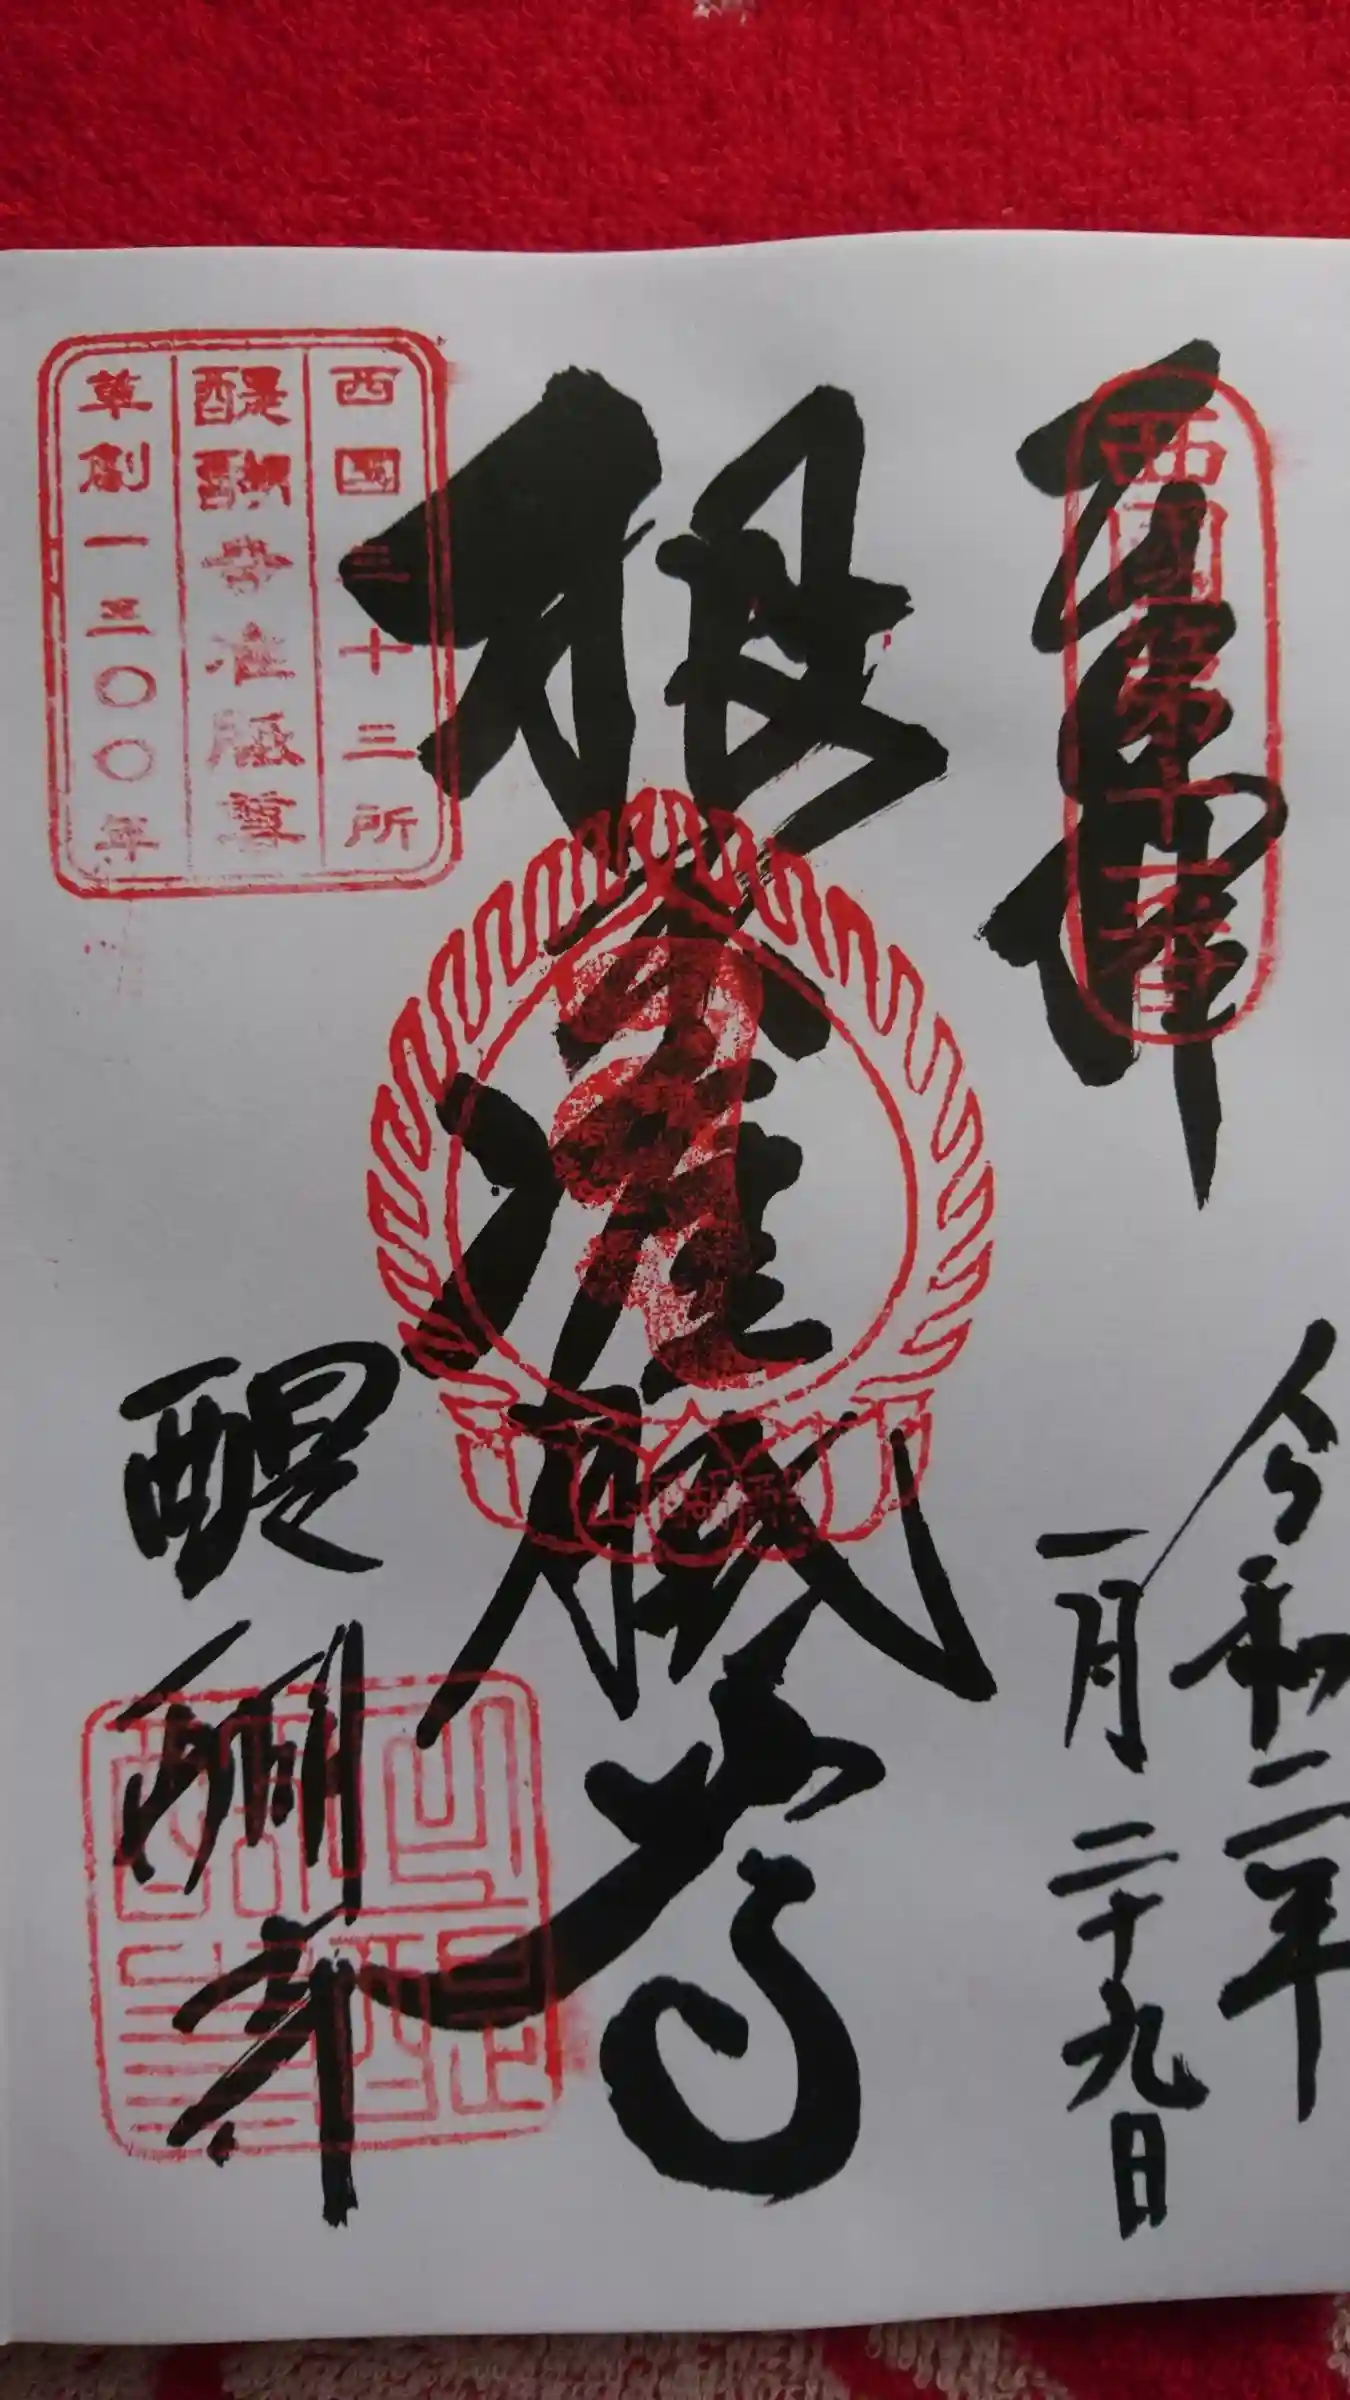 奉拝
西國第十一番
令和二年
一月二十九日
根本准胝尊
醍醐山
西國三十三所
醍醐寺准胝尊
草創一三〇〇年
醍醐寺